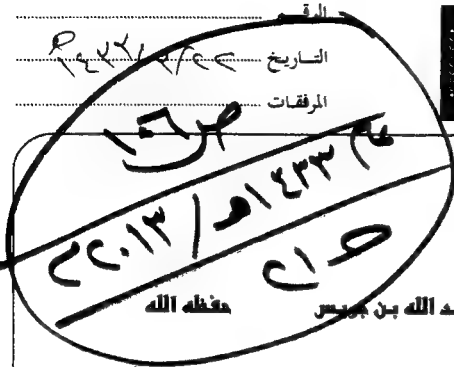 الرقـم
التـاريخ
المرفقات
ص
عام ١٤٣٣هـ / ٢٠١٣م
ـد الله بن جريس حفظه الله